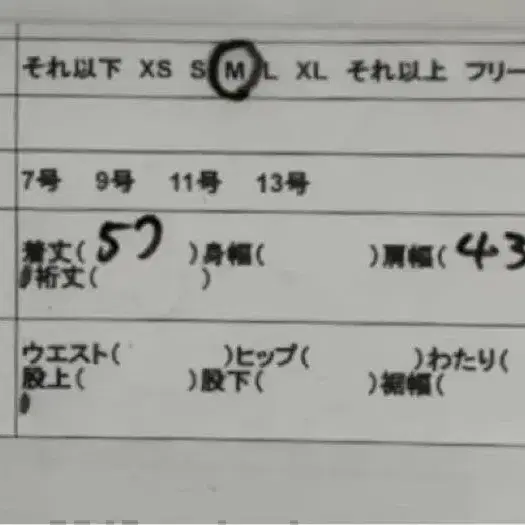 それ以下 XS S M L XL それ以上 フリー
7号 9号 11号 13号
着丈( 57 )身幅( )肩幅( 43
裄丈( )
ウエスト( )ヒップ( )わたり(
股上( )股下( )裾幅(